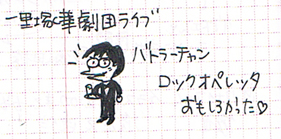 一里塚華劇団ライブ
バトラーチャン
ロックオペレッタ
おもしろかった♡